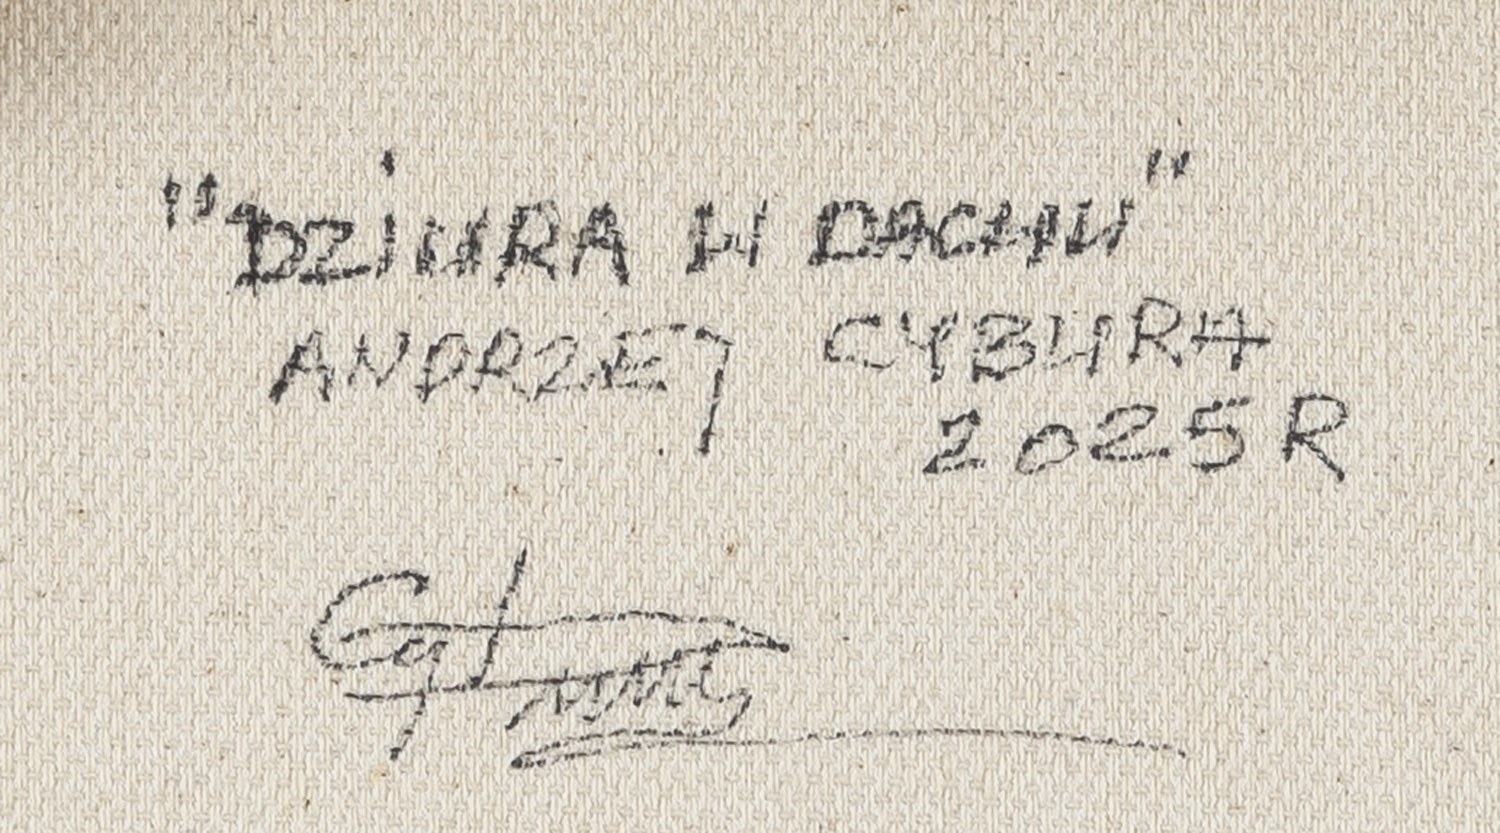 "DZiURA W DACHU"
ANDRZEJ CYBURA
2025R